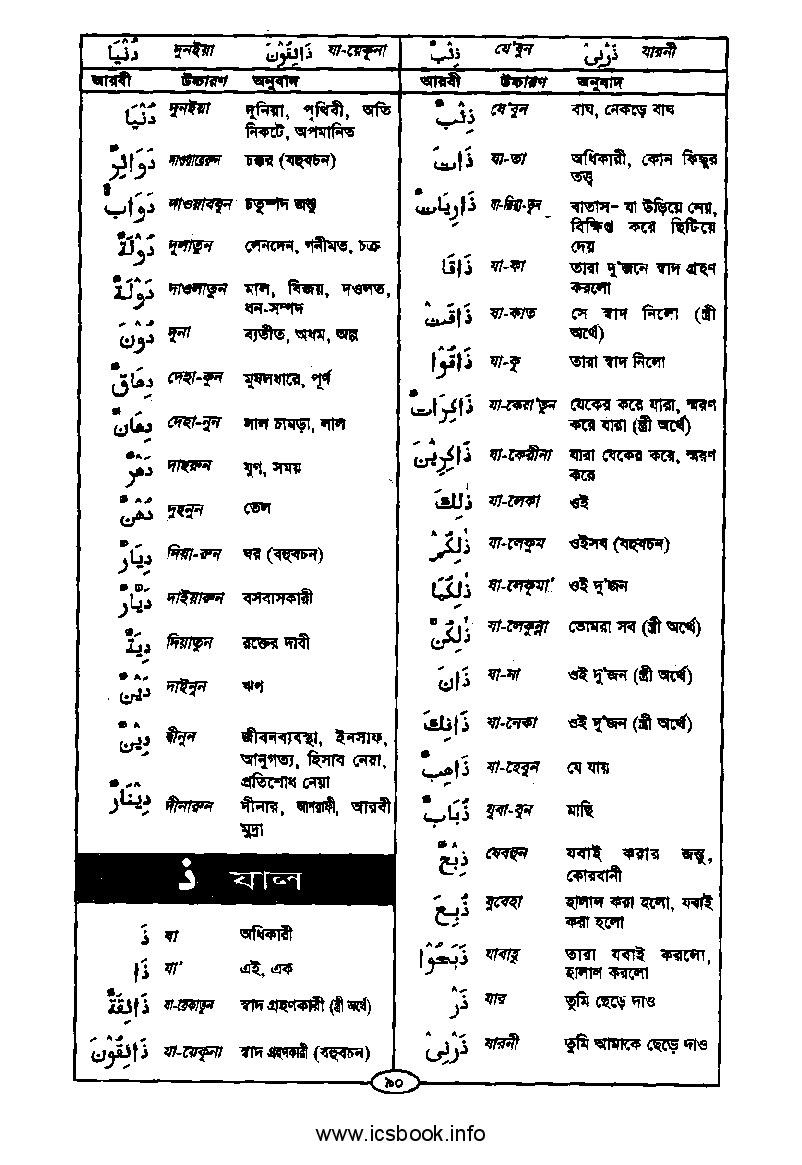 دُنْيَا দুনইয়া ذَائِقُوْنَ যা-য়েকুনা
আরবী উচ্চারণ অনুবাদ
دُنْيَا দুনইয়া দুনিয়া, পৃথিবী, অতি
নিকটে, অপমানিত
دَوَائِرٌ দাওয়ায়েরুন চক্কর (বহুবচন)
دَوَابٌ দাওয়াববুন চতুষ্পদ জন্তু
دُوْلَةٌ দূলাতুন লেনদেন, গনীমত, চক্র
دَوْلَةٌ দাওলাতুন মাল, বিজয়, দওলত,
ধন-সম্পদ
دُوْنَ দুনা ব্যতীত, অধম, অল্প
دِهَاقٌ দেহা-কুন মুষলধারে, পূর্ণ
دِهَانٌ দেহা-নুন লাল চামড়া, লাল
دَهْرٌ দাহরুন যুগ, সময়
دُهْنٌ দুহনুন তেল
دِيَارٌ দিয়া-রুন ঘর (বহুবচন)
دَيَّارٌ দাইয়ারুন বসবাসকারী
دِيَةٌ দিয়াতুন রক্তের দাবী
دَيْنٌ দাইনুন ঋণ
دِيْنٌ দ্বীনুন জীবনব্যবস্থা, ইনসাফ,
আনুগত্য, হিসাব নেয়া,
প্রতিশোধ নেয়া
دِيْنَارٌ দীনারুন দীনার, আশরাফী, আরবী
মুদ্রা
ذ যাল
ذَ যা অধিকারী
ذَا যা' এই, এক
ذَائِقَةٌ যা-য়েকাতুন স্বাদ গ্রহণকারী (স্ত্রী অর্থে)
ذَائِقُوْنَ যা-য়েকুনা স্বাদ গ্রহণকারী (বহুবচন)
ذِئْبٌ যে'বুন ذَرْنِىْ যারনী
আরবী উচ্চারণ অনুবাদ
ذِئْبٌ যে'বুন বাঘ, নেকড়ে বাঘ
ذَاتَ যা-তা অধিকারী, কোন কিছুর
তত্ত্ব
ذَارِيَاتٌ যা-রিয়া-তুন বাতাস- যা উড়িয়ে নেয়,
বিক্ষিপ্ত করে ছিটিয়ে
দেয়
ذَاقَا যা-কা তারা দু'জনে স্বাদ গ্রহণ
করলো
ذَاقَتْ যা-কাত সে স্বাদ নিলো (স্ত্রী
অর্থে)
ذَاقُوْا যা-কু তারা স্বাদ নিলো
ذَاكِرَاتٌ যা-কেরা'তুন যেকের করে যারা, স্মরণ
করে যারা (স্ত্রী অর্থে)
ذَاكِرِيْنَ যা-কেরীনা যারা যেকের করে, স্মরণ
করে
ذٰلِكَ যা-লেকা ওই
ذٰلِكُمْ যা-লেকুম ওইসব (বহুবচন)
ذٰلِكُمَا যা-লেকুমা' ওই দু'জন
ذٰلِكُنَّ যা-লেকুন্না তোমরা সব (স্ত্রী অর্থে)
ذَانَ যা-না ওই দু'জন (স্ত্রী অর্থে)
ذَانِكَ যা-নেকা ওই দু'জন (স্ত্রী অর্থে)
ذَاهِبٌ যা-হেবুন যে যায়
ذُبَابٌ যুবা-বুন মাছি
ذِبْحٌ যেবহুন যবাই করার জন্তু,
কোরবানী
ذُبِحَ যুবেহা হালাল করা হলো, যবাই
করা হলো
ذَبَحُوْا যাবাহু তারা যবাই করলো,
হালাল করলো
ذَرْ যার তুমি ছেড়ে দাও
ذَرْنِىْ যারনী তুমি আমাকে ছেড়ে দাও
৯০
www.icsbook.info